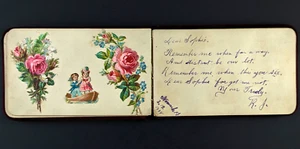 Dear Sophie,
Remember me when far away,
And distant be our lot.
Remember me when you
Dear Sophie forget me not.
Yours Truly,
R. J.